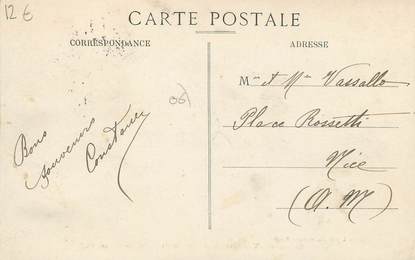 12 €
CARTE POSTALE
CORRESPONDANCE
ADRESSE
(06)
Bons
souvenirs
Constance
M— et Mme Vassallo
Place Rossetti
Nice
(A. M)